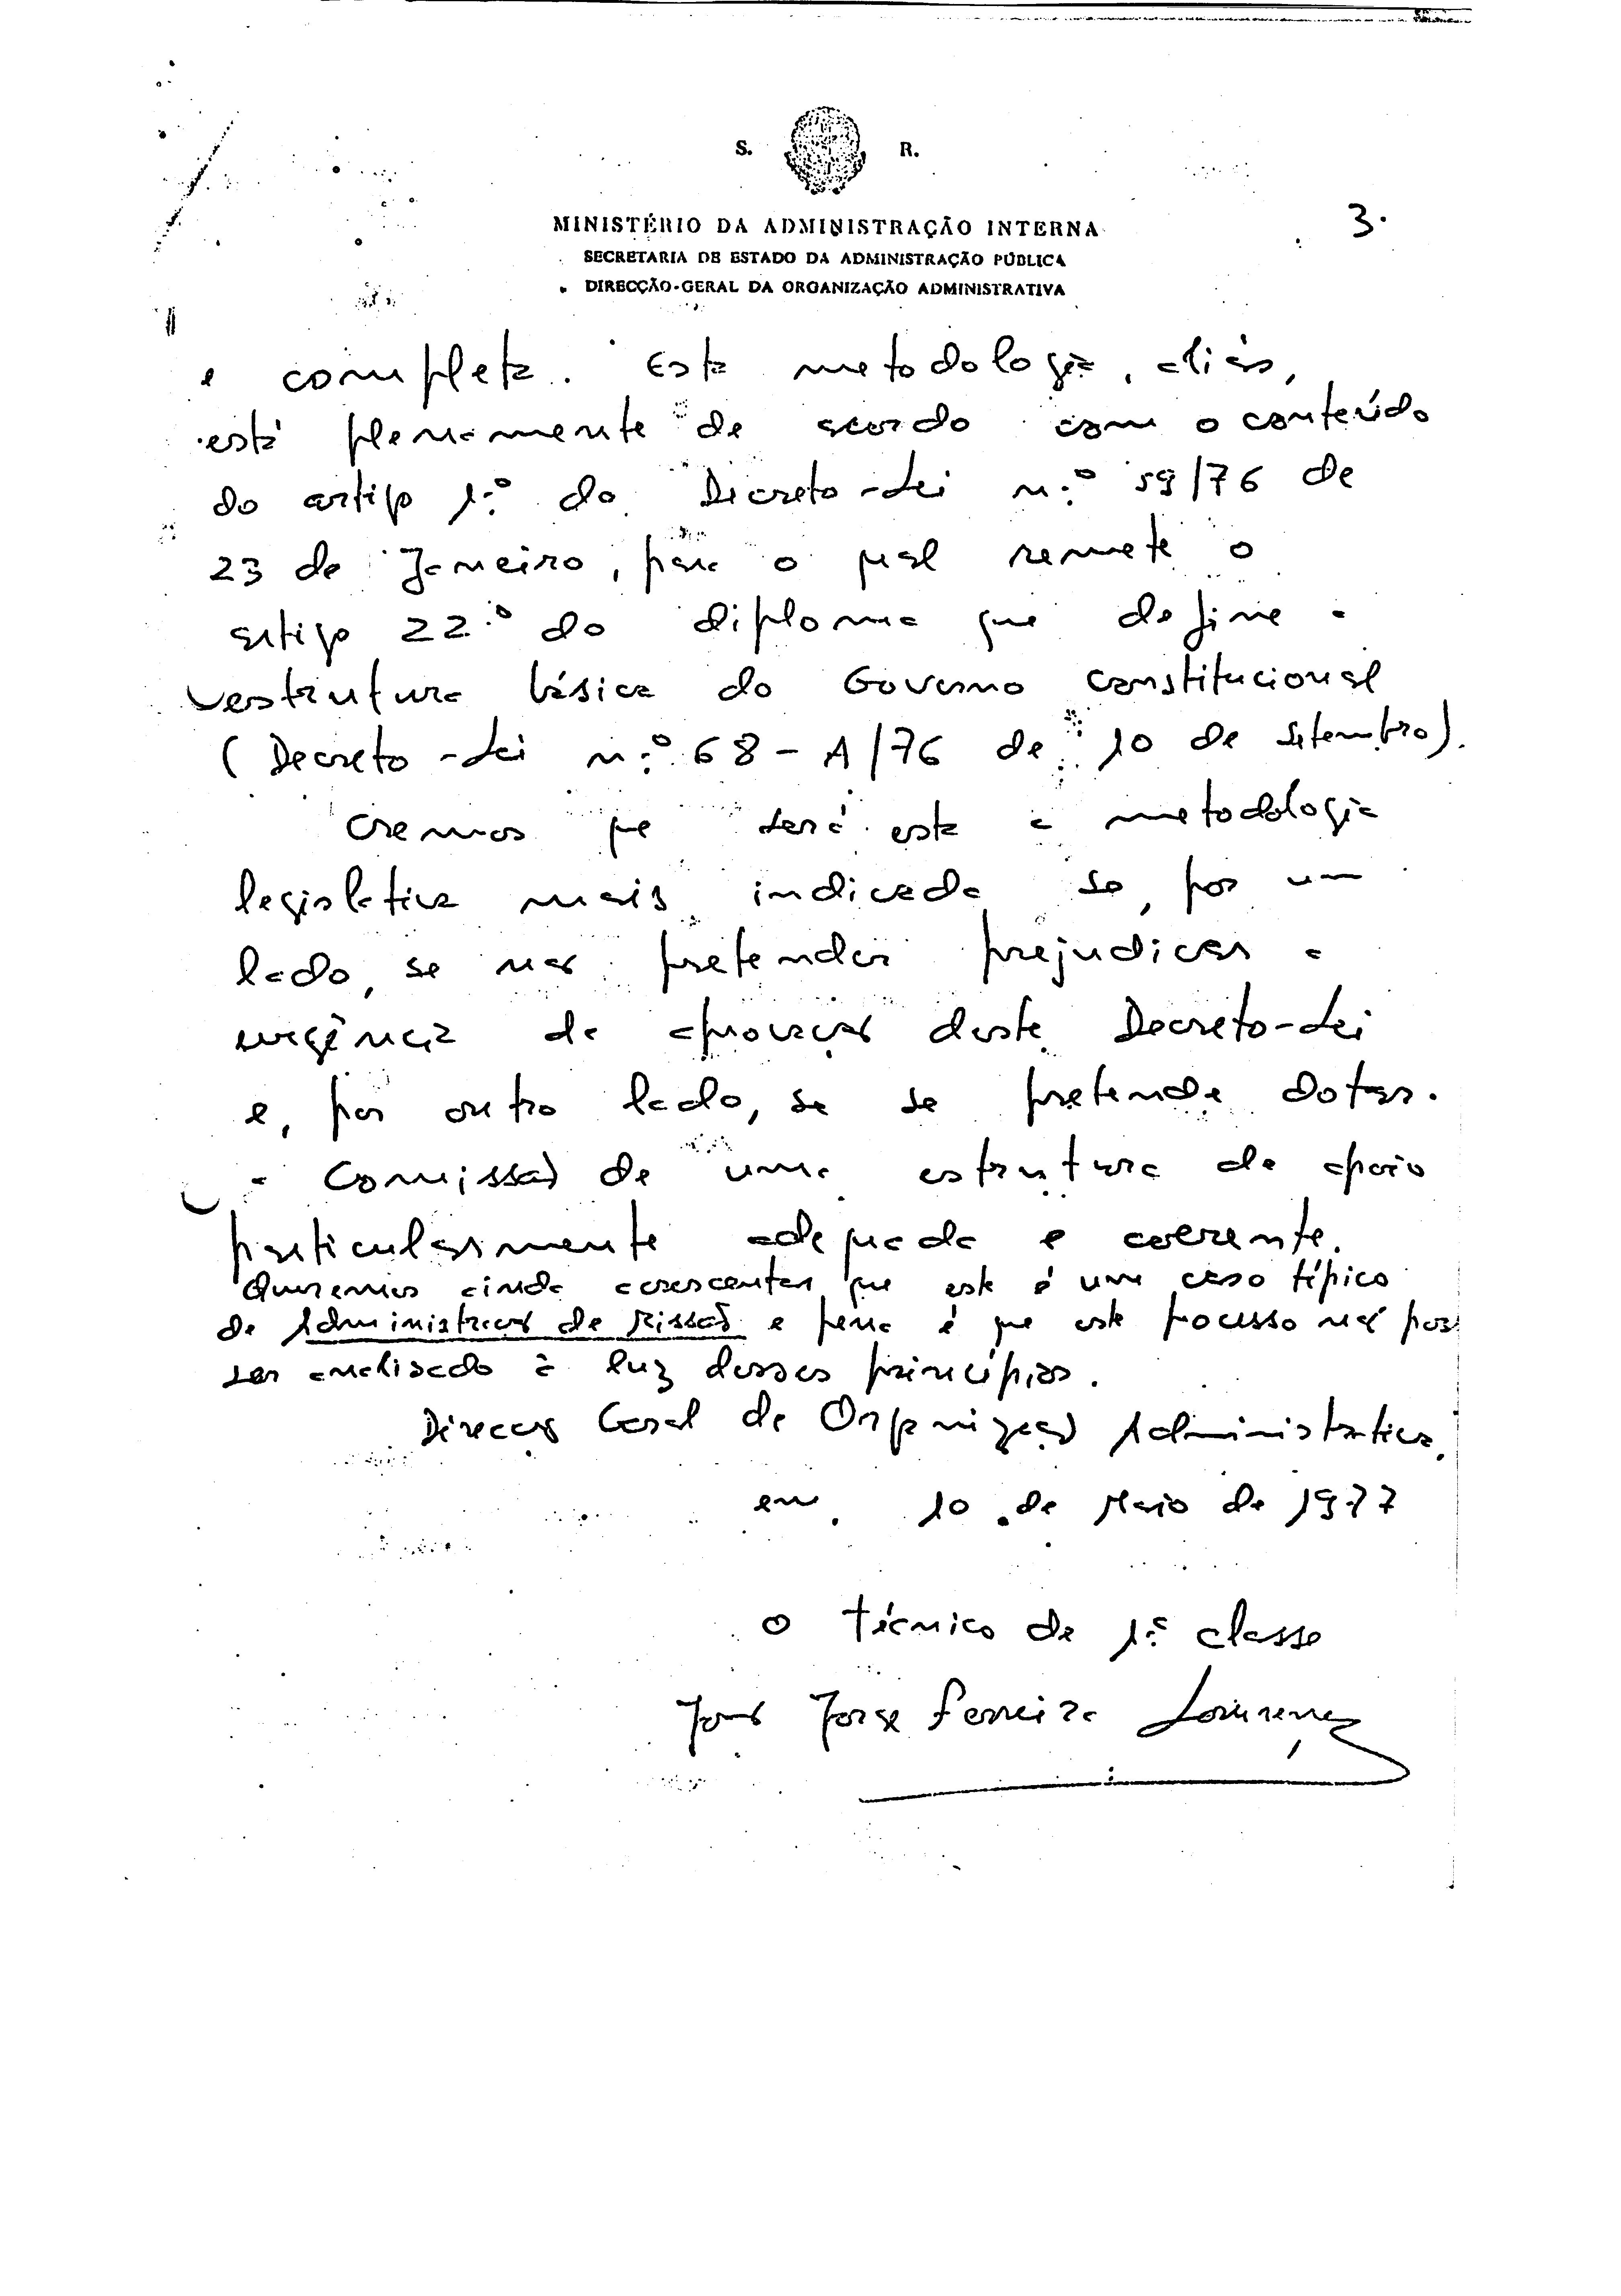 S. R.
3.
MINISTÉRIO DA ADMINISTRAÇÃO INTERNA
SECRETARIA DE ESTADO DA ADMINISTRAÇÃO PÚBLICA
DIRECÇÃO-GERAL DA ORGANIZAÇÃO ADMINISTRATIVA
e completa. Esta metodologia, aliás,
está plenamente de acordo com o conteúdo
do artigo 1.º do Decreto-Lei n.º 59/76 de
23 de Janeiro, para o qual remete o
artigo 22.º do diploma que define a
estrutura básica do Governo constitucional
(Decreto-Lei n.º 683-A/76 de 10 de Setembro).
Cremos que será esta a metodologia
legislativa mais indicada se, por um
lado, se não pretender prejudicar a
urgência da aprovação deste Decreto-Lei
e, por outro lado, se se pretende dotar
a Comissão de uma estrutura de apoio
particularmente adequada e coerente.
Queremos ainda acrescentar que este é um caso típico
de Administração de Missão e pena é que este processo não possa
ser analisado à luz desses princípios.
Direcção Geral da Organização Administrativa,
em, 10 de Maio de 1977
O técnico de 1.ª classe
João Jorge Ferreira Lourenço